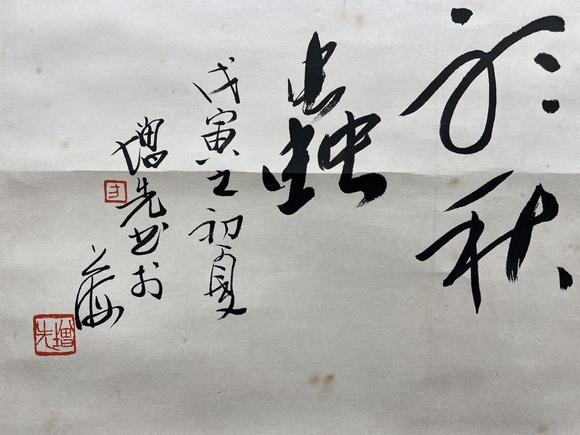 於秋
蟲
戊寅之初夏
增先書於上海
方
增先